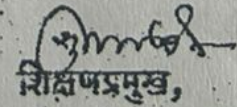 शिक्षणप्रमुख,